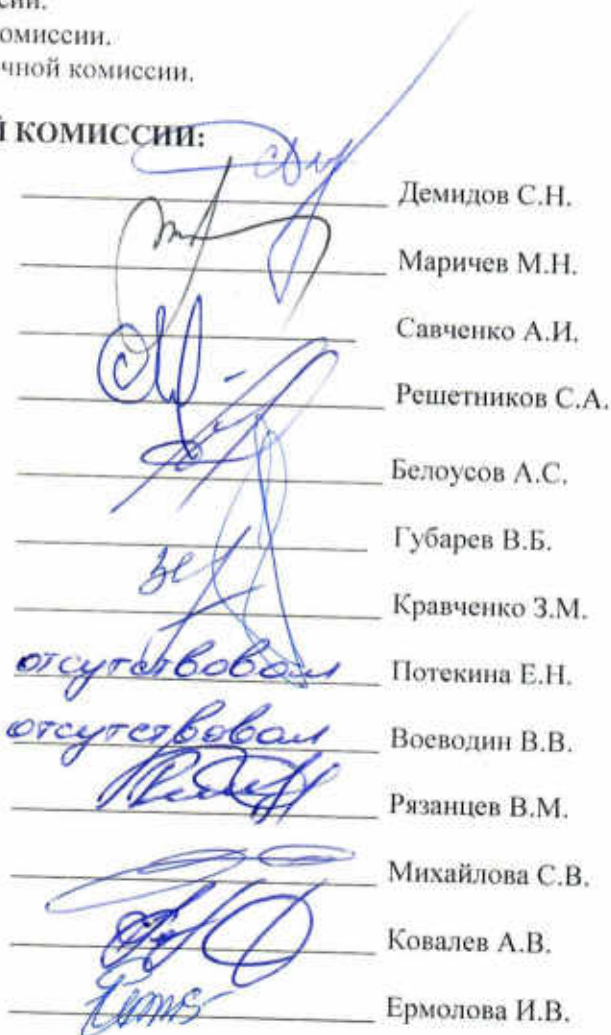 сии.
омиссии.
чной комиссии.
Й КОМИССИИ:
Демидов С.Н.
Маричев М.Н.
Савченко А.И.
Решетников С.А.
Белоусов А.С.
Губарев В.Б.
Кравченко З.М.
отсутствовал Потекина Е.Н.
отсутствовал Воеводин В.В.
Рязанцев В.М.
Михайлова С.В.
Ковалев А.В.
Ермолова И.В.